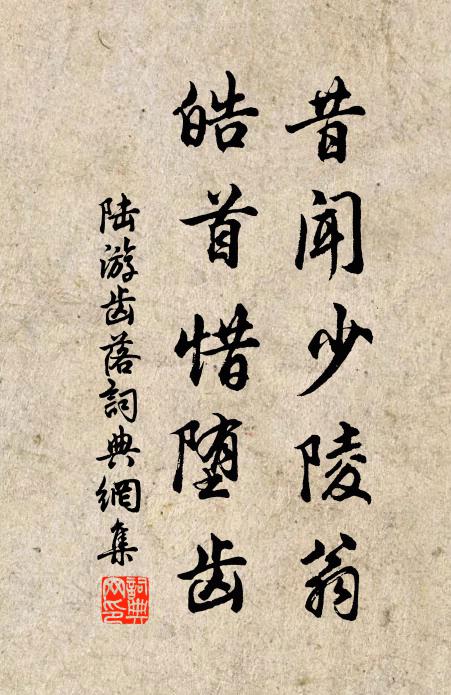 昔闻少陵翁
皓首惜堕齿
陆游齿落詞典網集
詞典